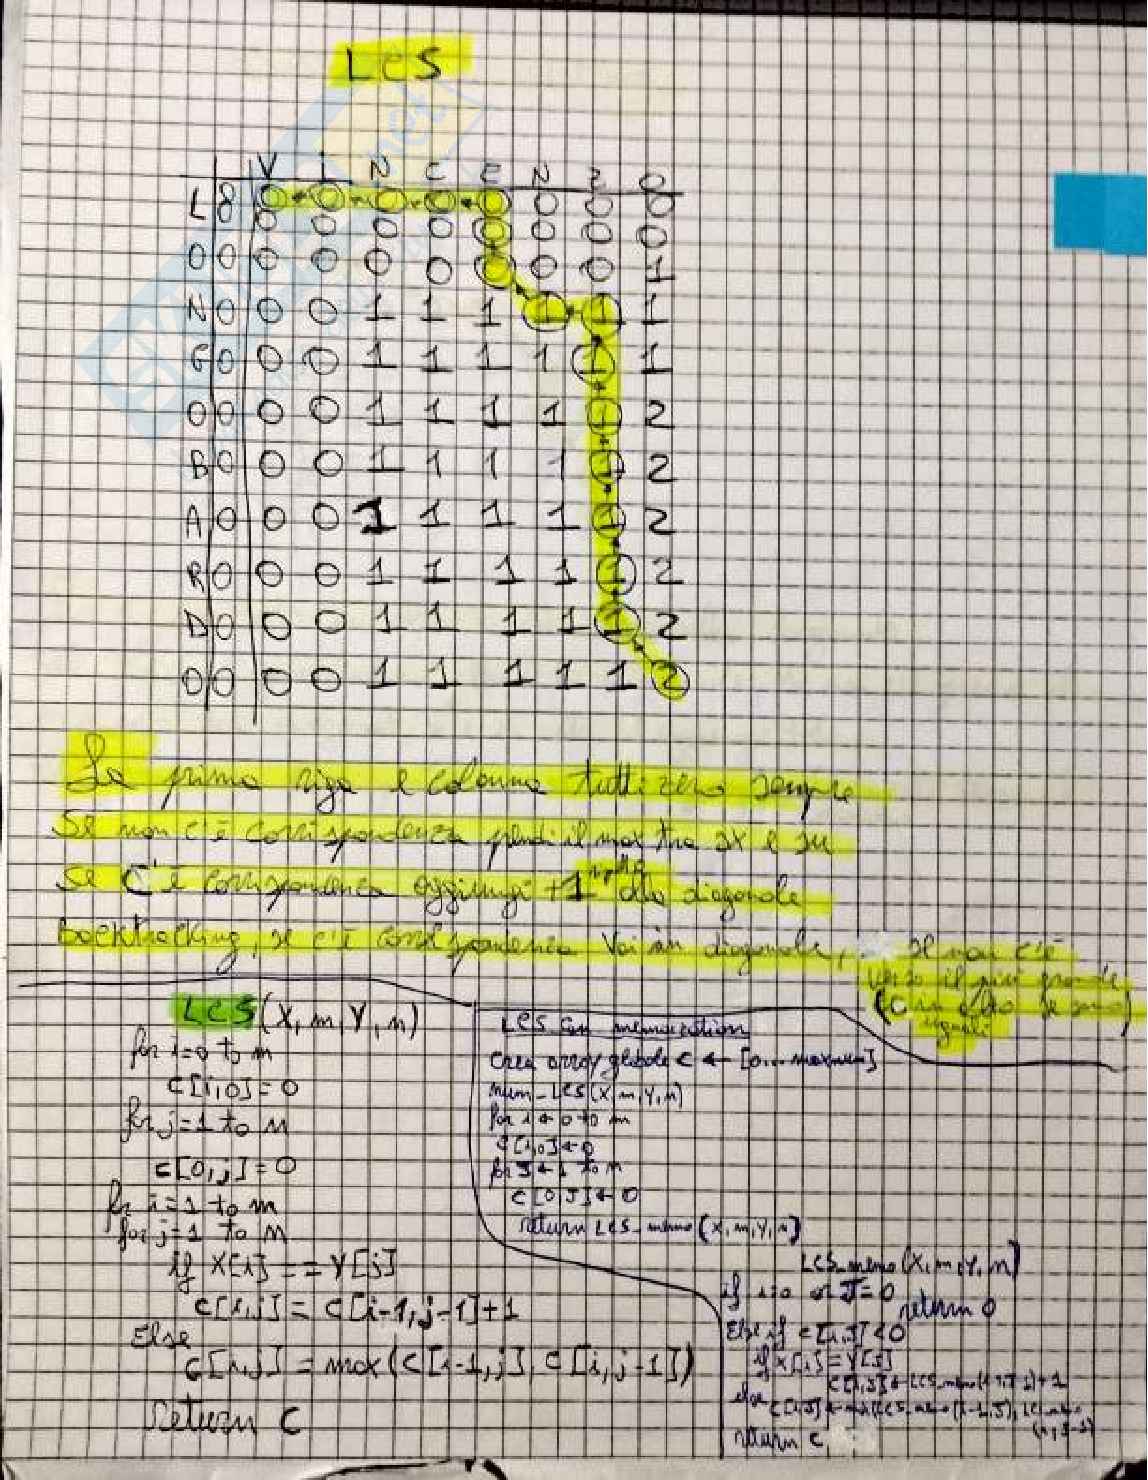 LCS
V I N C E N Z O
L 0 0 0 0 0 0 0 0 0
0 0 0 0 0 0 0 0
O 0 0 0 0 0 0 0 0 1
N 0 0 0 1 1 1 1 1 1
G 0 0 0 1 1 1 1 1 1
O 0 0 0 1 1 1 1 1 2
B 0 0 0 1 1 1 1 1 2
A 0 0 0 1 1 1 1 1 2
R 0 0 0 1 1 1 1 1 2
D 0 0 0 1 1 1 1 1 2
O 0 0 0 1 1 1 1 1 2
La prima riga e colonna tutti zero sempre
Se non c'è corrispondenza prendi il max tra sx e su
se c'è corrispondenza aggiungi +1 rispetto alla diagonale
Backtracking, se c'è corrispondenza vai in diagonale, se non c'è
verso il più grande
(O in alto se sono
uguali)
LCS(X,m,Y,n)
for i=0 to m
c[i,0]=0
for j=1 to n
c[0,j]=0
for i=1 to m
for j=1 to n
if X[i]==Y[j]
c[i,j]=c[i-1,j-1]+1
Else
c[i,j]=max(c[i-1,j],c[i,j-1])
return c
LCS con memoization
Crea array globale c ← [0...maxnum]
num_LCS(X,m,Y,n)
for i ← 0 to m
c[i,0]←0
for J ← 1 to n
c[0,J]←0
return LCS_memo(X,m,Y,n)
LCS_memo(X,m,Y,n)
if i=0 or J=0
return 0
Else if c[i,J]<0
if X[i]=Y[J]
c[i,J]←LCS_memo(i-1,J-1)+1
else c[i,J]←max(LCS_memo(i-1,J), LCS_memo
(i,J-1)
return c